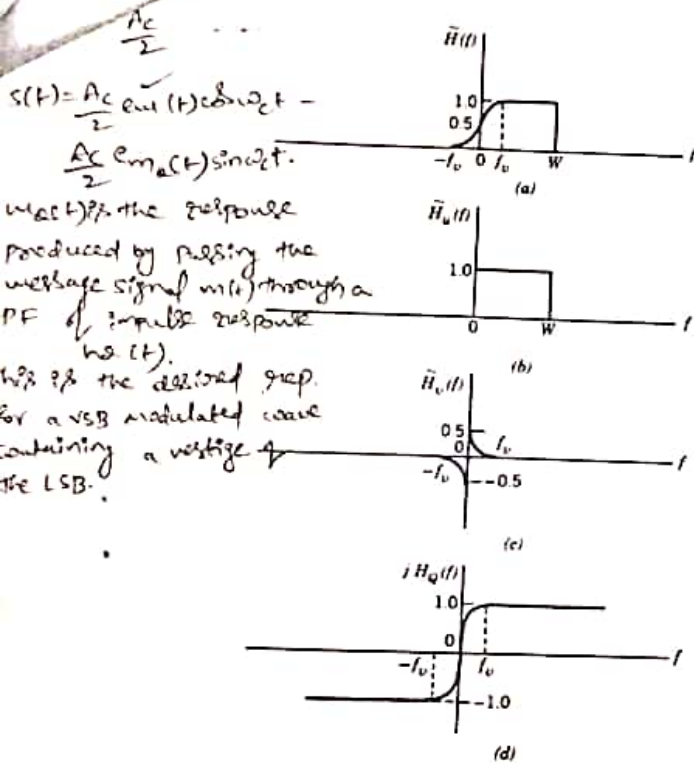 Ac
2
...
s(t) = Ac/2 m(t) cos ωct −
Ac/2 mQ(t) sin ωct.
is the response
produced by passing the
message signal m(t) through a
PF of impulse response
(t).
is the desired rep.
for a VSB modulated wave
containing a vestige of
the LSB.
H̃(f)
1.0
0.5
−fv 0 fv W f
(a)
H̃u(f)
1.0
0 W f
(b)
H̃v(f)
0.5
0 fv f
−fv
−0.5
(c)
j HQ(f)
1.0
0
−fv fv f
−1.0
(d)